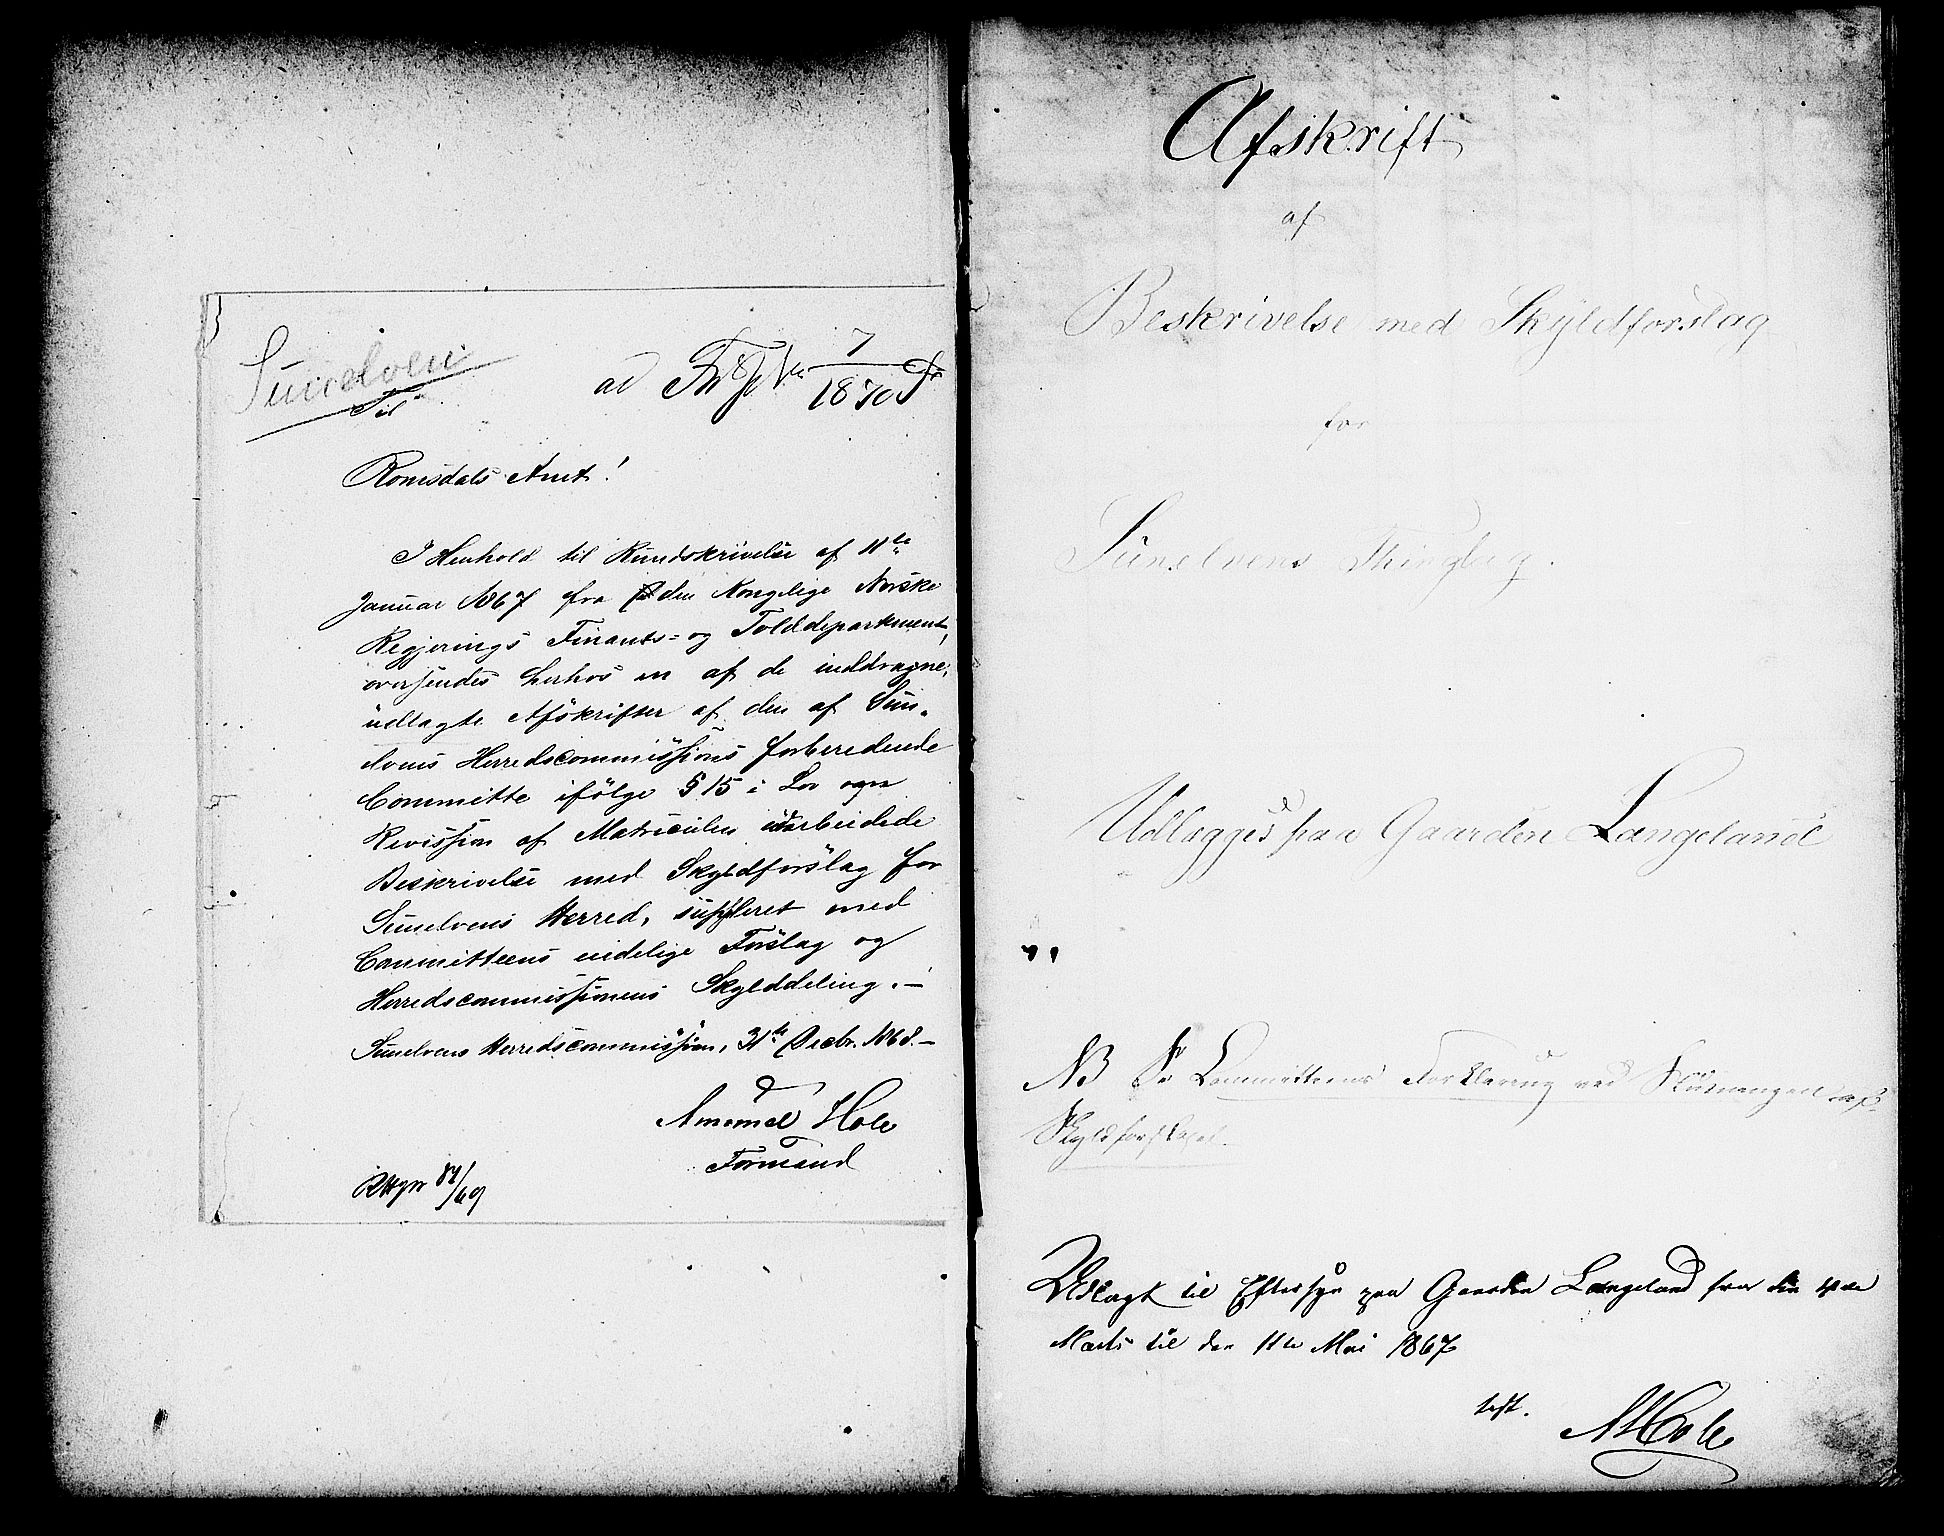 Sunelven
ad 7
1870
Til
Romsdals Amt!
I Henhold til Rundskrivelse af 11te
Januar 1867 fra den Kongelige Norske
Regjerings Finants- og Tolddepartment,
oversendes herhos en af de inddragne,
udlagte Afskrifter af den af Sun-
elvens Herredscommissions forberedende
Committe ifölge § 15 i Lov om
Revission af Matriculen udarbeidede
Beskrivelse med Skyldforslag for
Sunelvens Herred, suppleret med
Committeens endelige Forslag og
Herredscommissionens Skylddeling. –
Sunelvens Herredscommission, 31te Decbr. 1868. –
Amund Hole
Formand
Afskrift
af
Beskrivelse med Skyldforslag
for
Sunelvens Thinglag.
Udlægges paa Gaarden Langeland
NB Se Committeens Forklaring ved
Udlagt til Eftersyn paa Gaarden Langeland fra den
Marts til den 11te Mai 1867
test.
A Hole